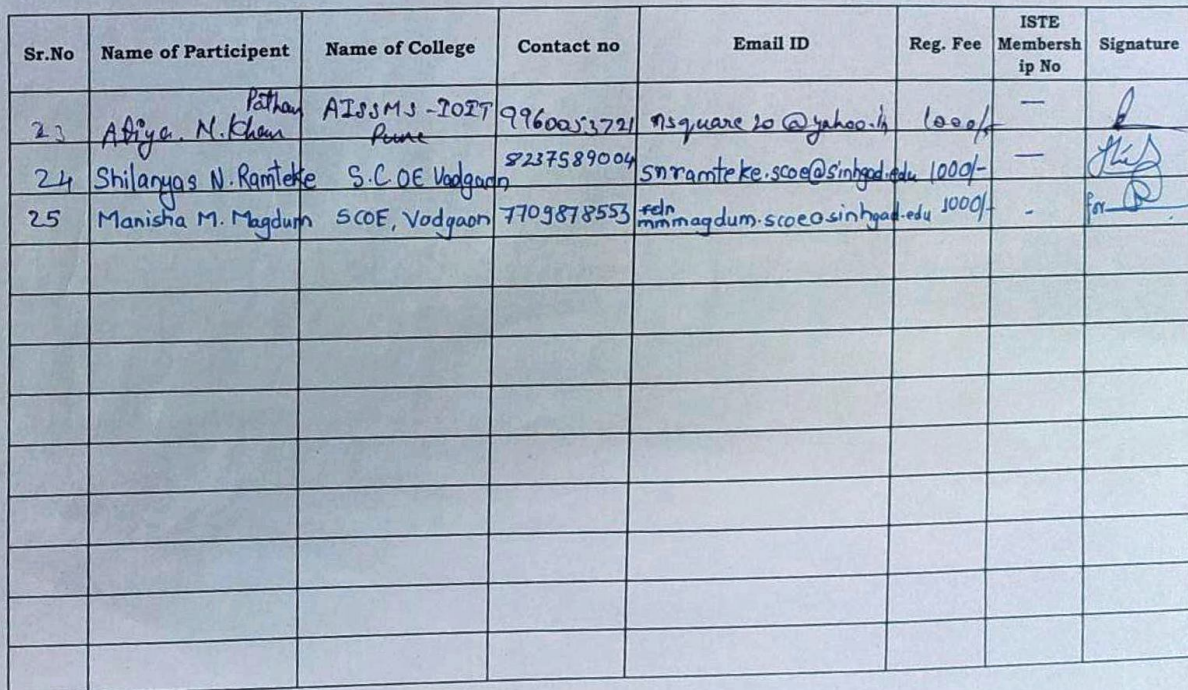 Sr.No Name of Participent Name of College Contact no Email ID Reg. Fee ISTE Membersh ip No Signature
23 Afiya. N. Khan Pathan AISSMS - IOIT Pune 9960053721 nsquare20@yahoo.in 1000/- —
24 Shilanyas N. Ramteke S.C.OE Vadgaon 8237589004 snramteke.scoe@sinhgad.edu 1000/- —
25 Manisha M. Magdum SCOE, Vadgaon 7709878553 mmmagdum.scoe@sinhgad.edu 1000/- - for